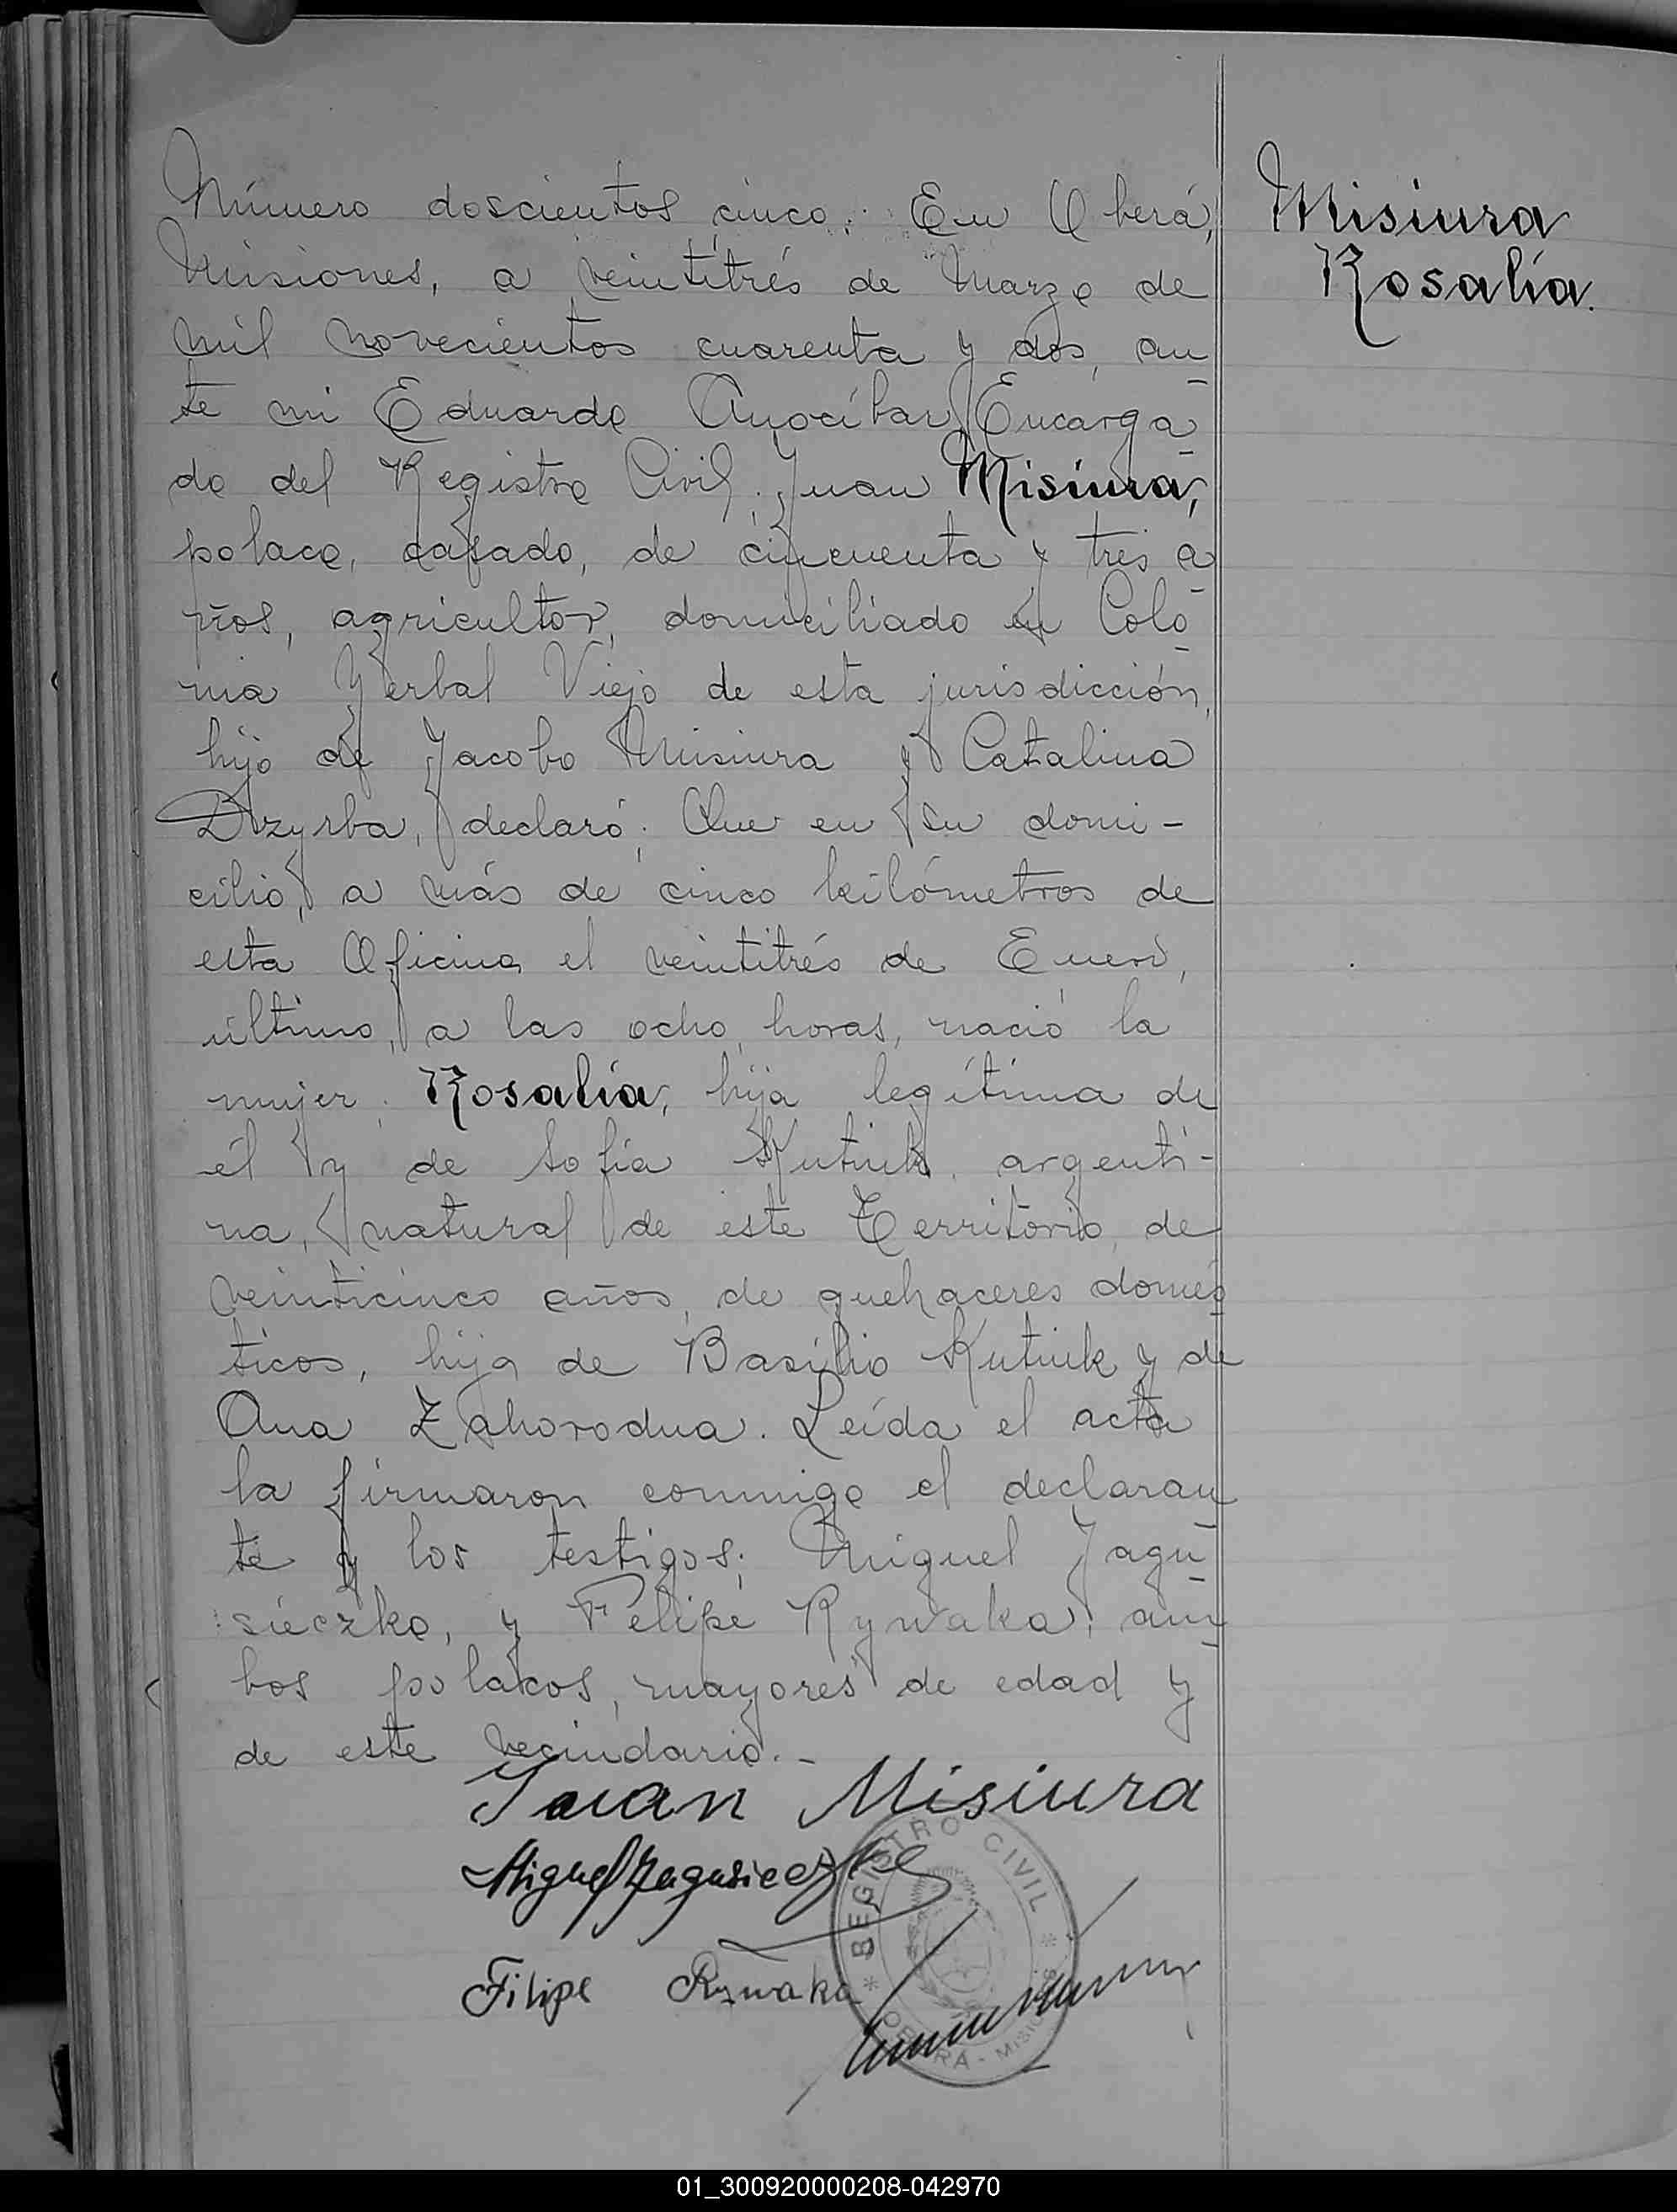 Número doscientos cinco: En Oberá,
Misiones, a veintitrés de Marzo de
mil novecientos cuarenta y dos, an
te mi Eduardo Anocíbar Encarga
do del Registro Civil, Juan Misiura,
polaco, casado, de cincuenta y tres a
ños, agricultor, domiciliado en Colo
nia Yerbal Viejo de esta jurisdicción,
hijo de Jacobo Misiura y Catalina
Dzyrba, declaró: Que en su domi-
cilio, a más de cinco kilómetros de
esta Oficina el veintitrés de Enero,
último, a las ocho horas, nació la
mujer: Rosalía, hija legítima de
él y de Sofía Kutnik, argenti-
na, natural de este Territorio, de
veinticinco años, de quehaceres domés
ticos, hija de Basilio Kutnik y de
Ana Zahorodna. Leída el acta
la firmaron conmigo el declaran
te y los testigos: Miguel Jagu
sieczko, y Felipe Rywaka, am
bos polacos, mayores de edad y
de este vecindario.-
Misiura
Rosalía.
Juan Misiura
Miguel Jagusieczko
Filipe Rywaka
REGISTRO CIVIL
OBERÁ - MISIONES
01_300920000208-042970